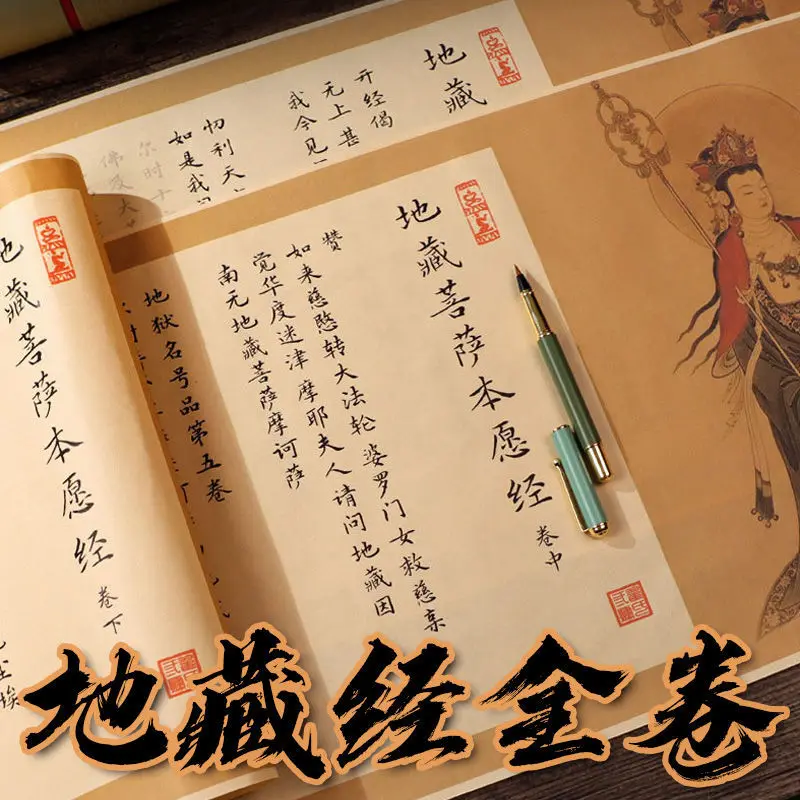 地藏
开经偈
无上甚
我今见
忉利天
如是我
尔时十
佛及大
地藏菩萨本愿经 卷中
赞
如来慈愍转大法轮婆罗门女救慈亲
觉华度迷津摩耶夫人请问地藏因
南无地藏菩萨摩诃萨
地狱名号品第五卷
地藏菩萨本愿经 卷下
地藏经全卷